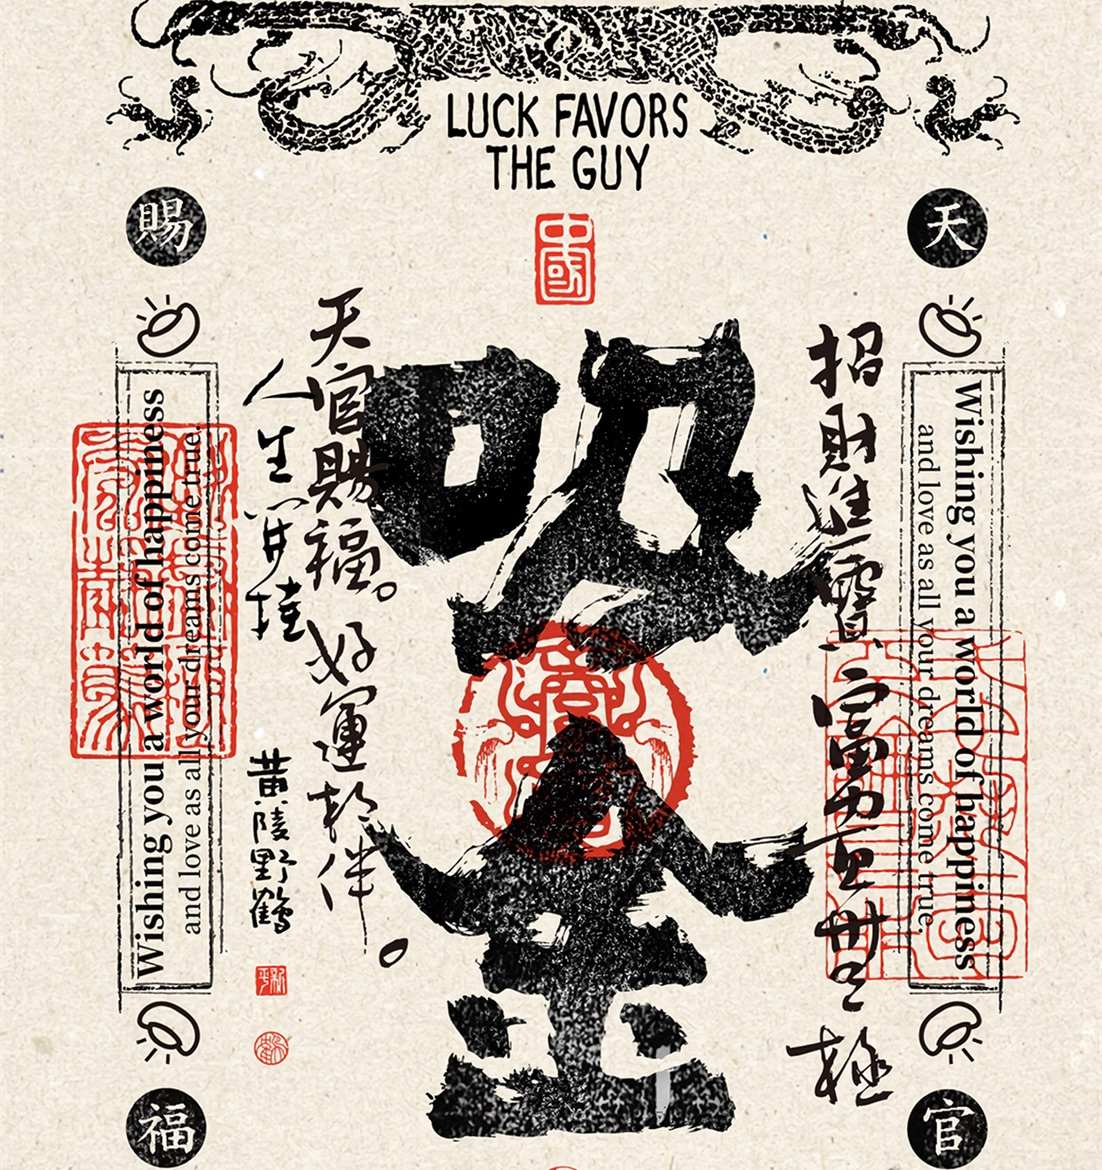 LUCK FAVORS
THE GUY
中國
天
官
賜
福
吸金
招財進寶 富
極
天官賜福。好運相伴。
人生开挂
黄陵野鶴
Wishing you a world of happiness
and love as all your dreams come true.
Wishing you a world of happiness
and love as all your dreams come true.